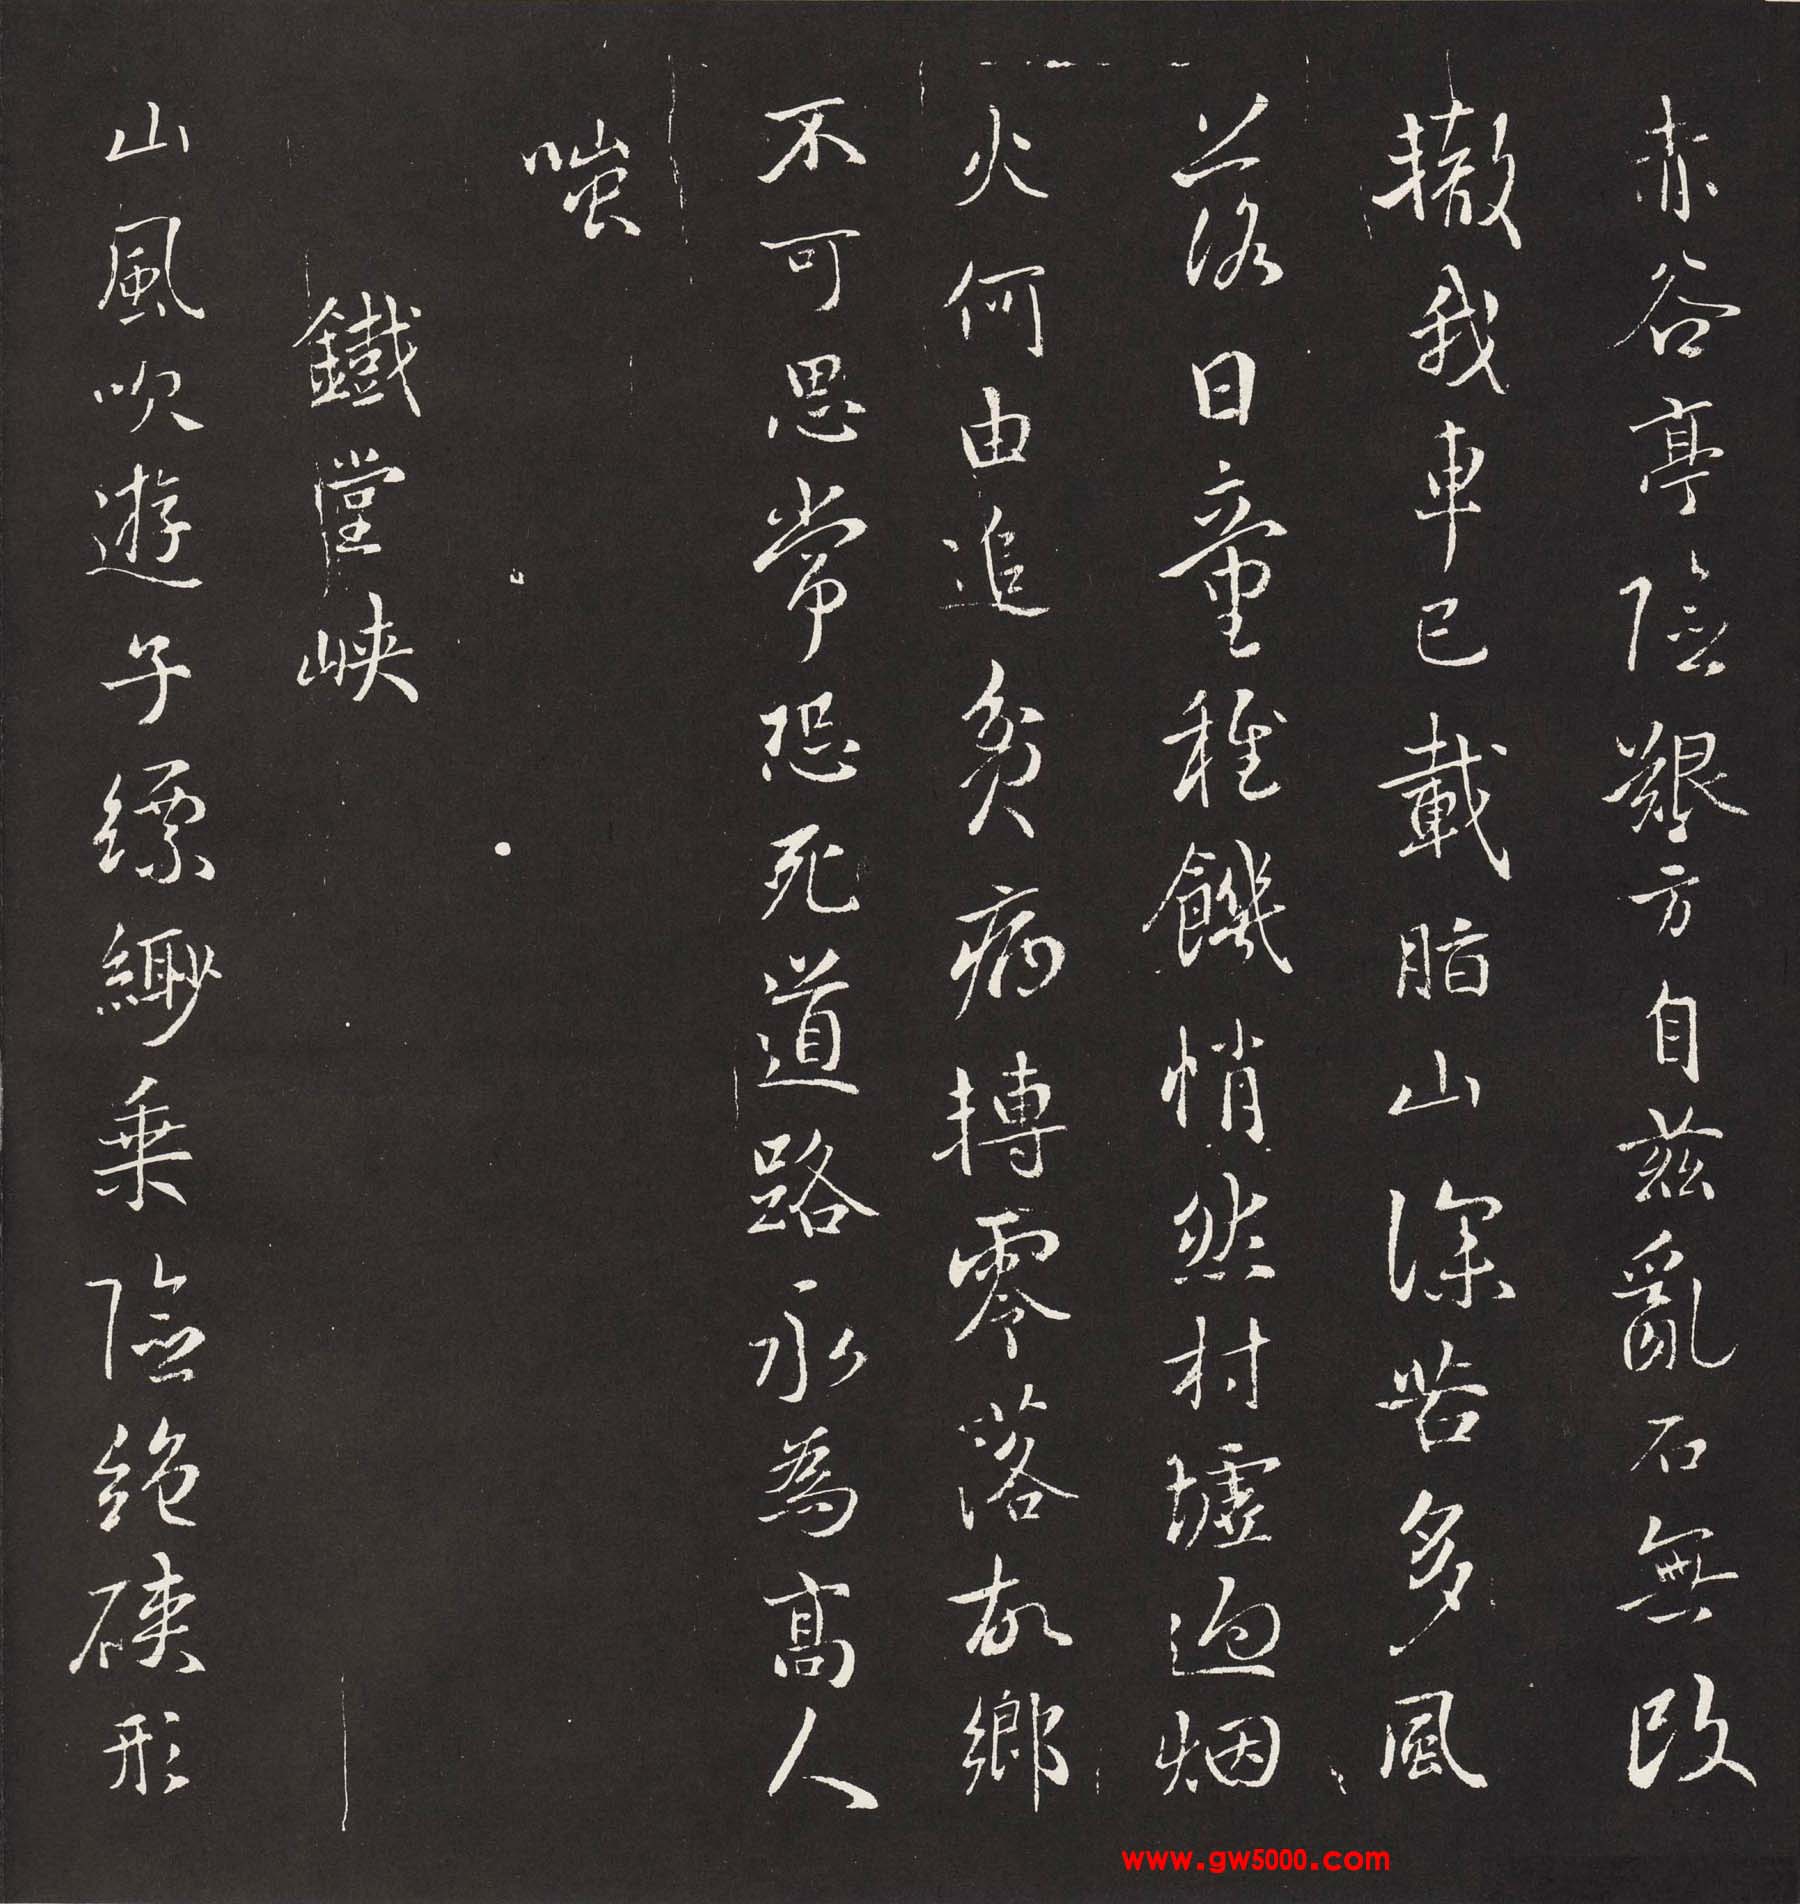 赤谷亭險艱方自茲亂石無改
轍我車已載脂山深苦多風
落日童稚饑悄然村墟迥烟
火何由追貧病轉零落故鄉
不可思常恐死道路永為高人
嗤
鐵堂峽
山風吹遊子縹緲乘險絶硤形
www.gw5000.com